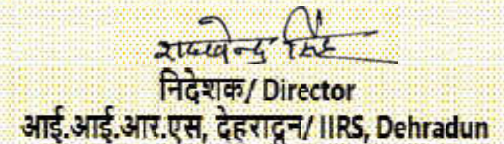 राघवेन्द्र सिंह
निदेशक/ Director
आई.आई.आर.एस, देहरादून/ IIRS, Dehradun